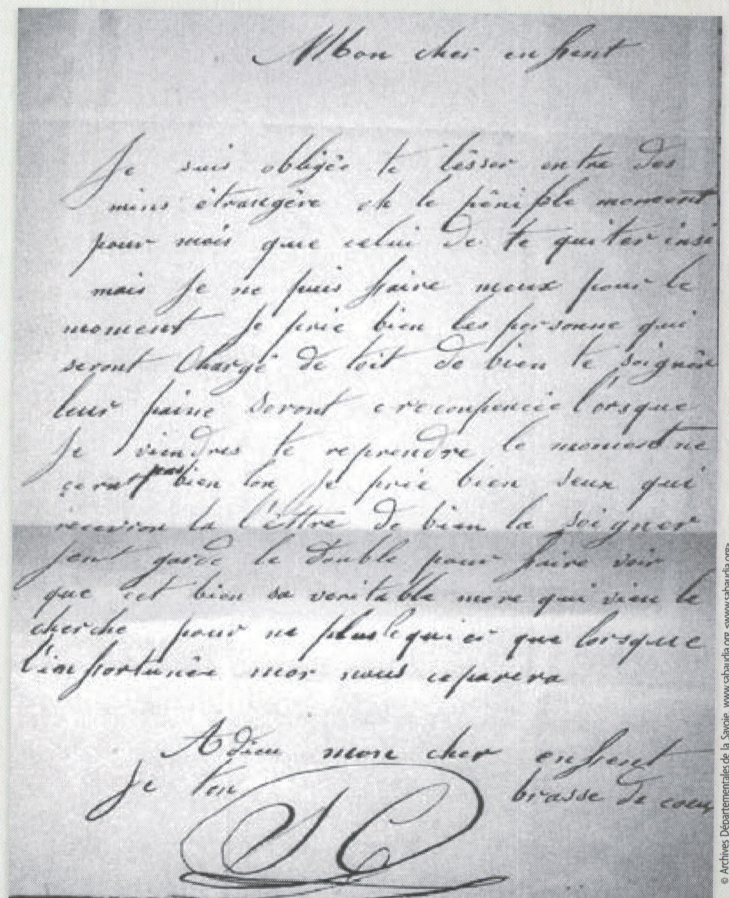 Mon cher enfent
Je suis obligée te lésser entre des
mins étrangère et le pénible moment
pour mois que celui de te quiter insi
mais je ne puis faire meux pour le
moment je prie bien les personne qui
seront chargé de toit de bien te soignér
leur paine seront crecompencée l'orsque
je viendres te reprendre le moment ne
cera pas bien lon je prie bien seux qui
recevron la l'éttre de bien la soigner
jent garde le double pour faire voir
que cet bien sa veritable mere qui vien le
cherche pour ne plus le qui que lorsque
l'infortunée mor nous ceparera
Adieu mon cher enfent
Je ten brasse de coeur
© Archives Départementales de la Savoie, www.sabaudia.org <www.sabaudia.org>